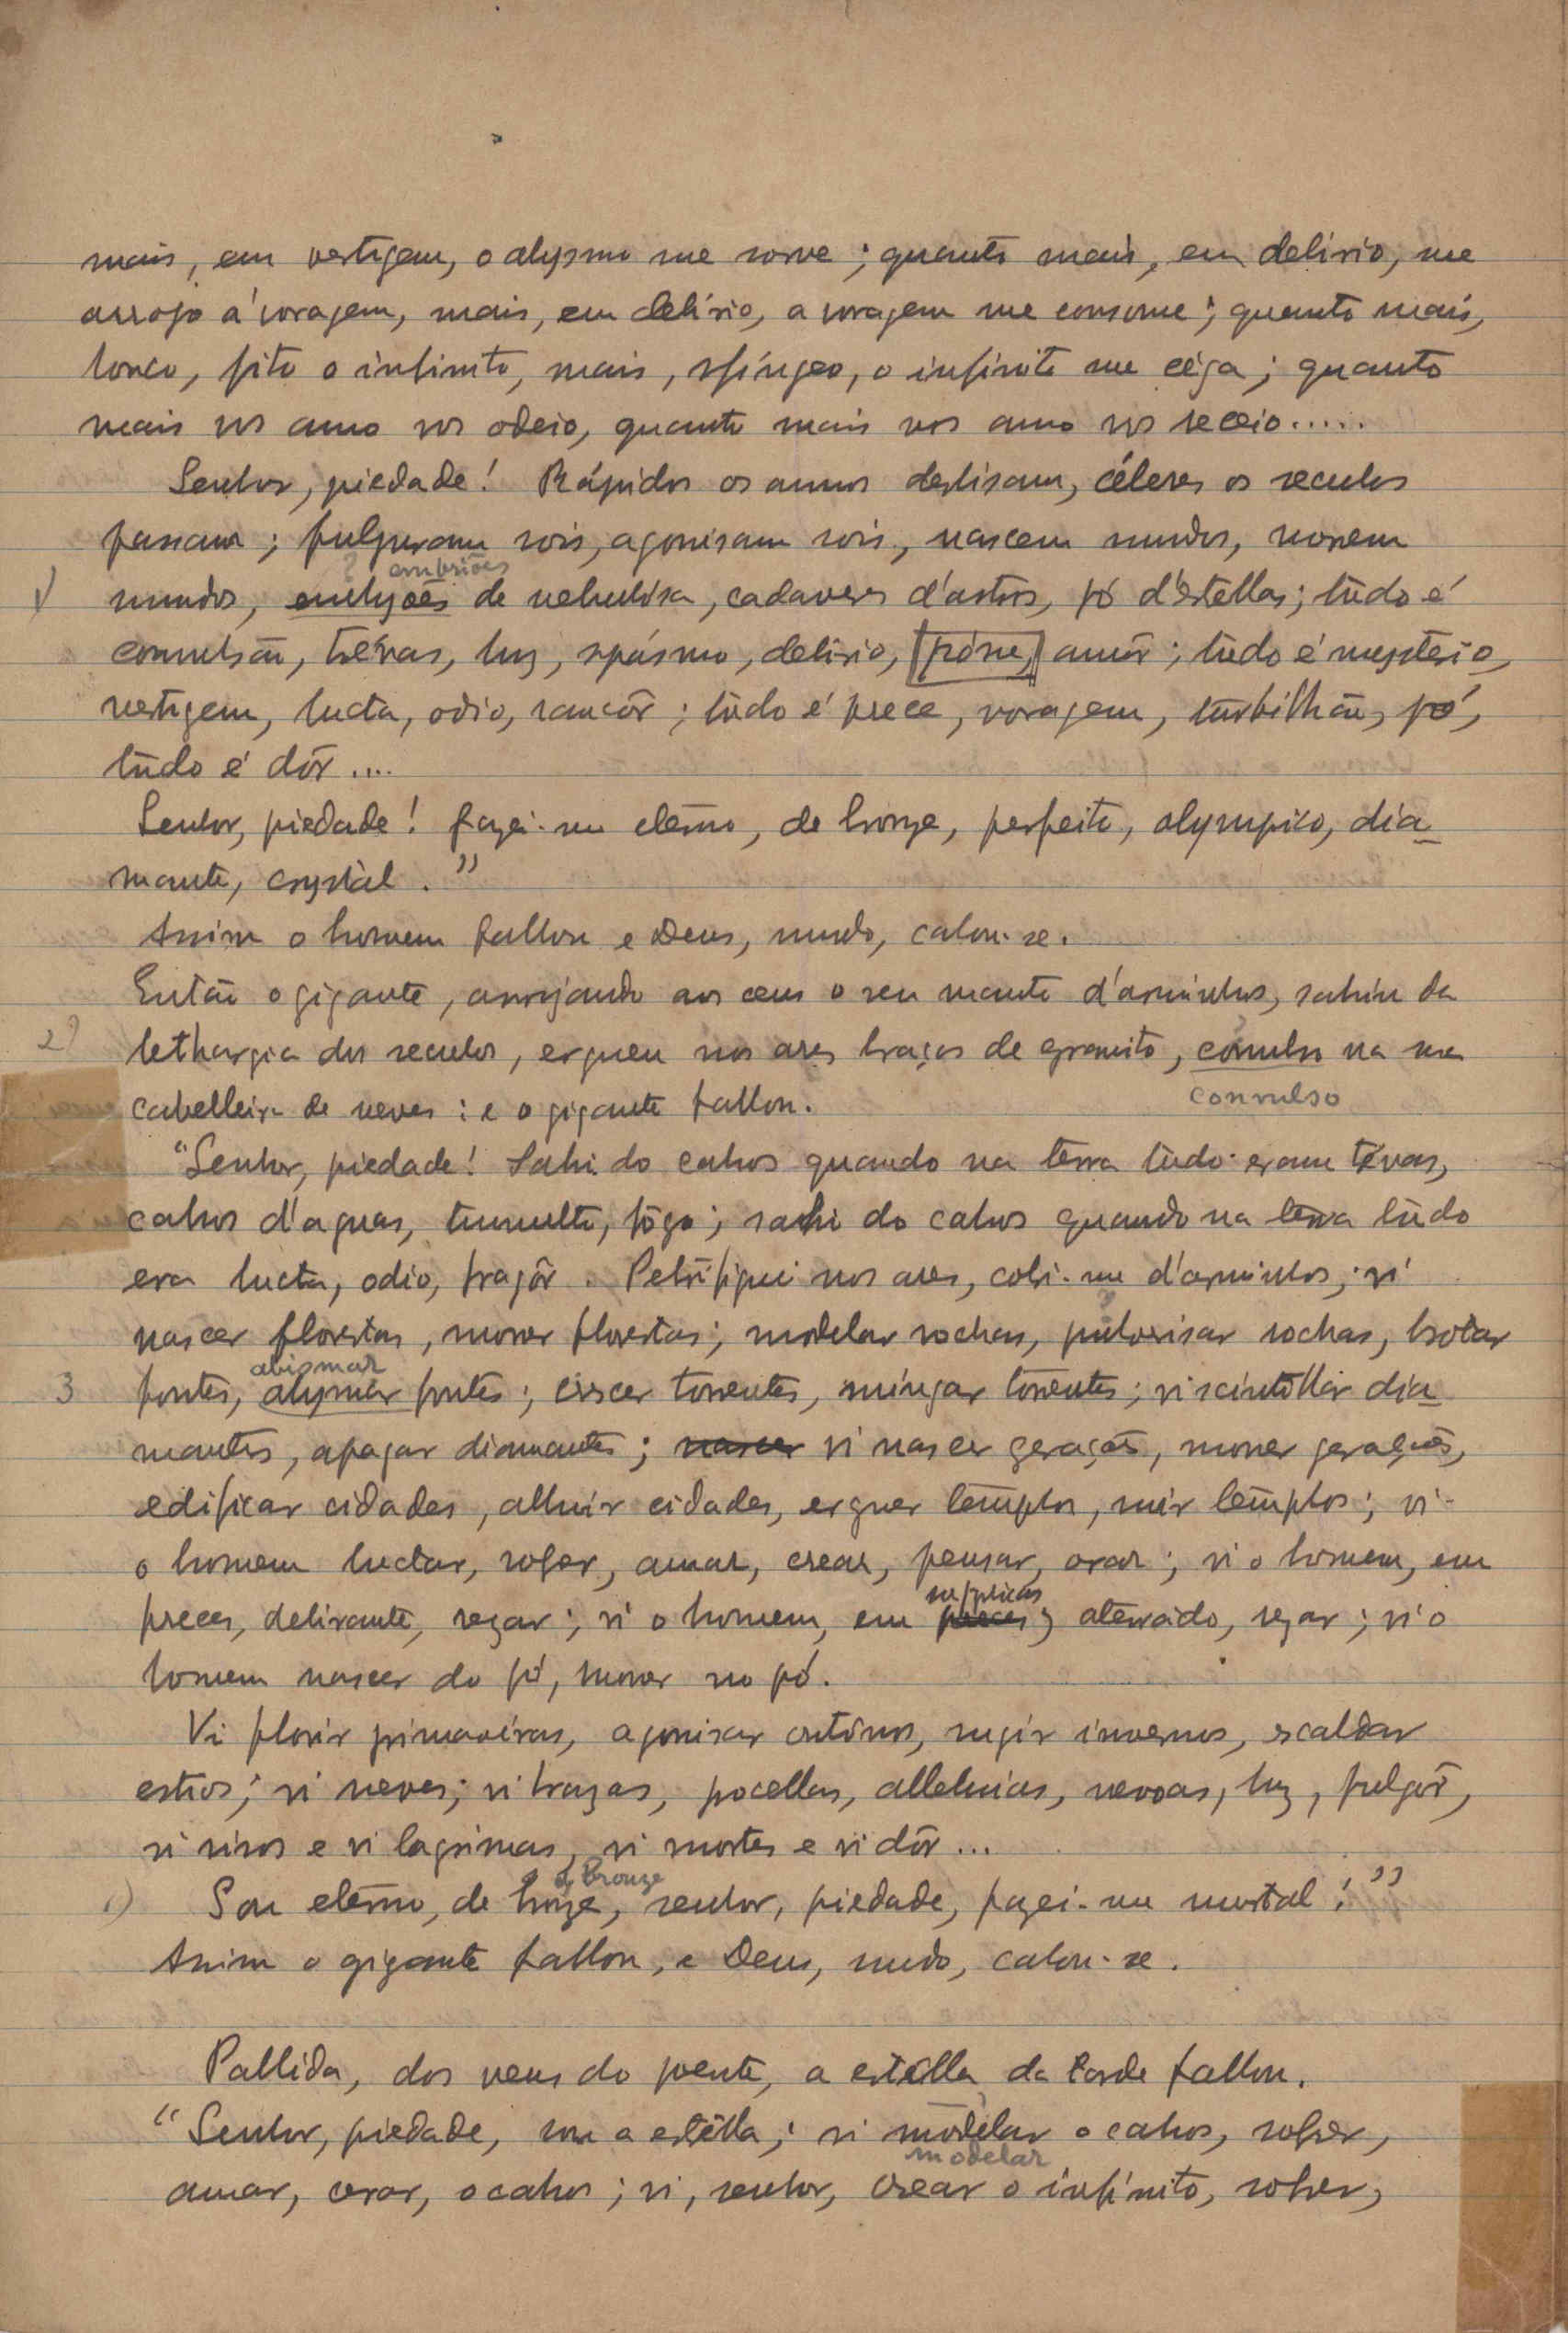 mais, em vertigem, o abysmo me sorve; quanto mais, em delirio, me
arrojo á voragem, mais, em delírio, a voragem me consome; quanto mais,
louco, fito o infinito, mais, sfíngeo, o infinito me céga; quanto
mais vos amo vos odeio, quanto mais vos amo vos receio.....
Senhor, piedade! Rápidos os annos deslisam, céleres os seculos
passam; fulguram sois, agonisam sois, nascem mundos, morrem
? embriões
1) mundos, de nebulósa, cadaveres d'astros, pó d'estellas; tùdo é
convulsão, trévas, luz, spásmo, delirio, amôr; tùdo é mysterio,
vertigem, lucta, odio, rancôr; tùdo é prece, voragem, turbilhão, pó,
tùdo é dôr....
Senhor, piedade! fazei-me etérno, de bronze, perfeito, olympico, dia
mante, crystàl."
Assim o homem fallou e Deus, mudo, calou-se.
Então o gigante, arrojando aos ceus o seu manto d'arminhos, sahiu da
2) lethargia dos seculos, ergueu nos ares braços de granito, convulso na sua
convulso
cabelleira de neves: e o gigante fallou.
"Senhor, piedade! Sahi do cahos quando na terra tùdo eram trévas,
cahos d'aguas, tumulto, fôgo; sahi do cahos quando na terra tùdo
era lucta, odio, fragôr. Petrifiquei nos ares, cobri-me d'arminhos; vi
nascer florestas, morrer florestas; modelar rochas, pulverisar rochas, brotar
abismar
3 fontes, abysmar fontes; crescer torrentes, míngar torrentes; vi scintillar dia
mantes, apagar diamantes; nascer vi nascer gerações, morrer gerações,
edificar cidades, alluir cidades, erguer templos, ruir templos; vi
o homem luctar, sofrer, amar, crear, pensar, orar; vi o homem, em
supplicas
preces, delirante, rezar; vi o homem, em preces, aterrado, rezar; vi o
homem nascer do pó, morrer no pó.
Vi florir primavéras, agonisar outônos, rugir invernos, escaldar
estios; vi neves; vi brazas, procellas, alleluias, nevoas, luz, fulgôr,
vi risos e vi lagrimas, vi mortes e vi dôr...
de Bronze
1) Sou etérno, de bronze, senhor, piedade, fazei-me mortal!"
Assim o gigante fallou, e Deus, mudo, calou-se.
Pallida, dos veus do poente, a estèlla da tarde fallou.
"Senhor, piedade, sou a estêlla; vi módelar o cahos, sofrer,
modelar
amar, orar, o cahos; vi, senhor, crear o infínito, sofrer,